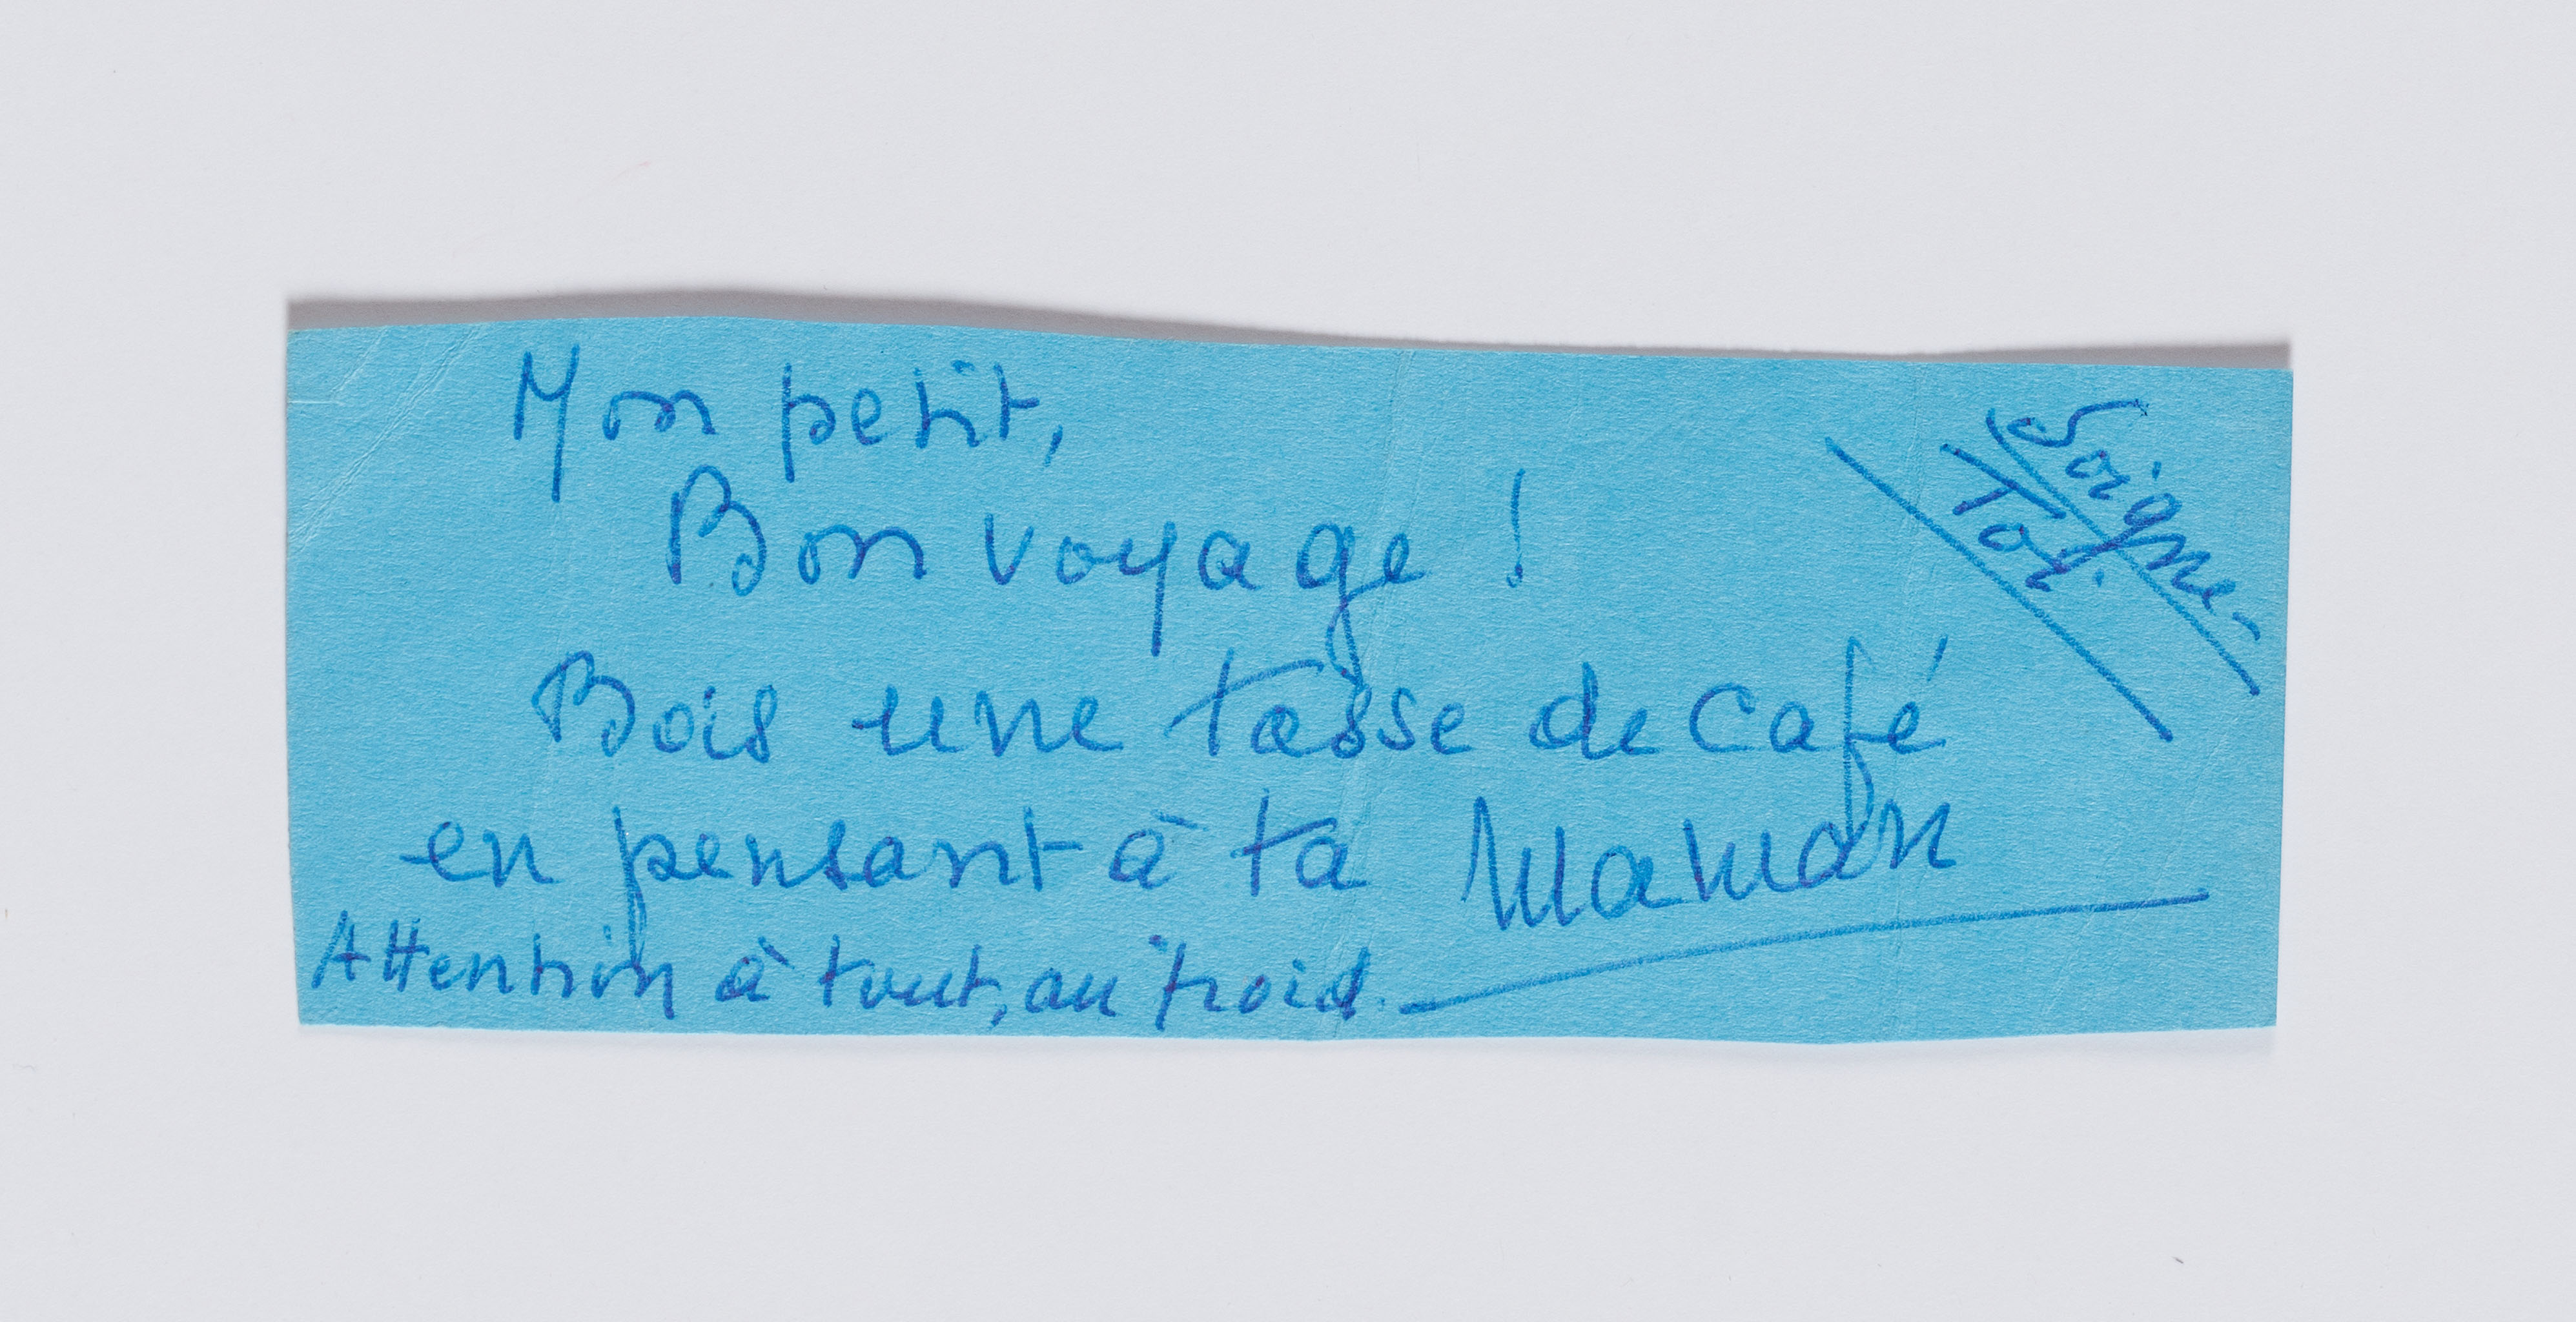 Mon petit,
Bon voyage !
Bois une tasse de café
en pensant à ta Maman
Attention à tout, au froid.
Soigne-
Toi.